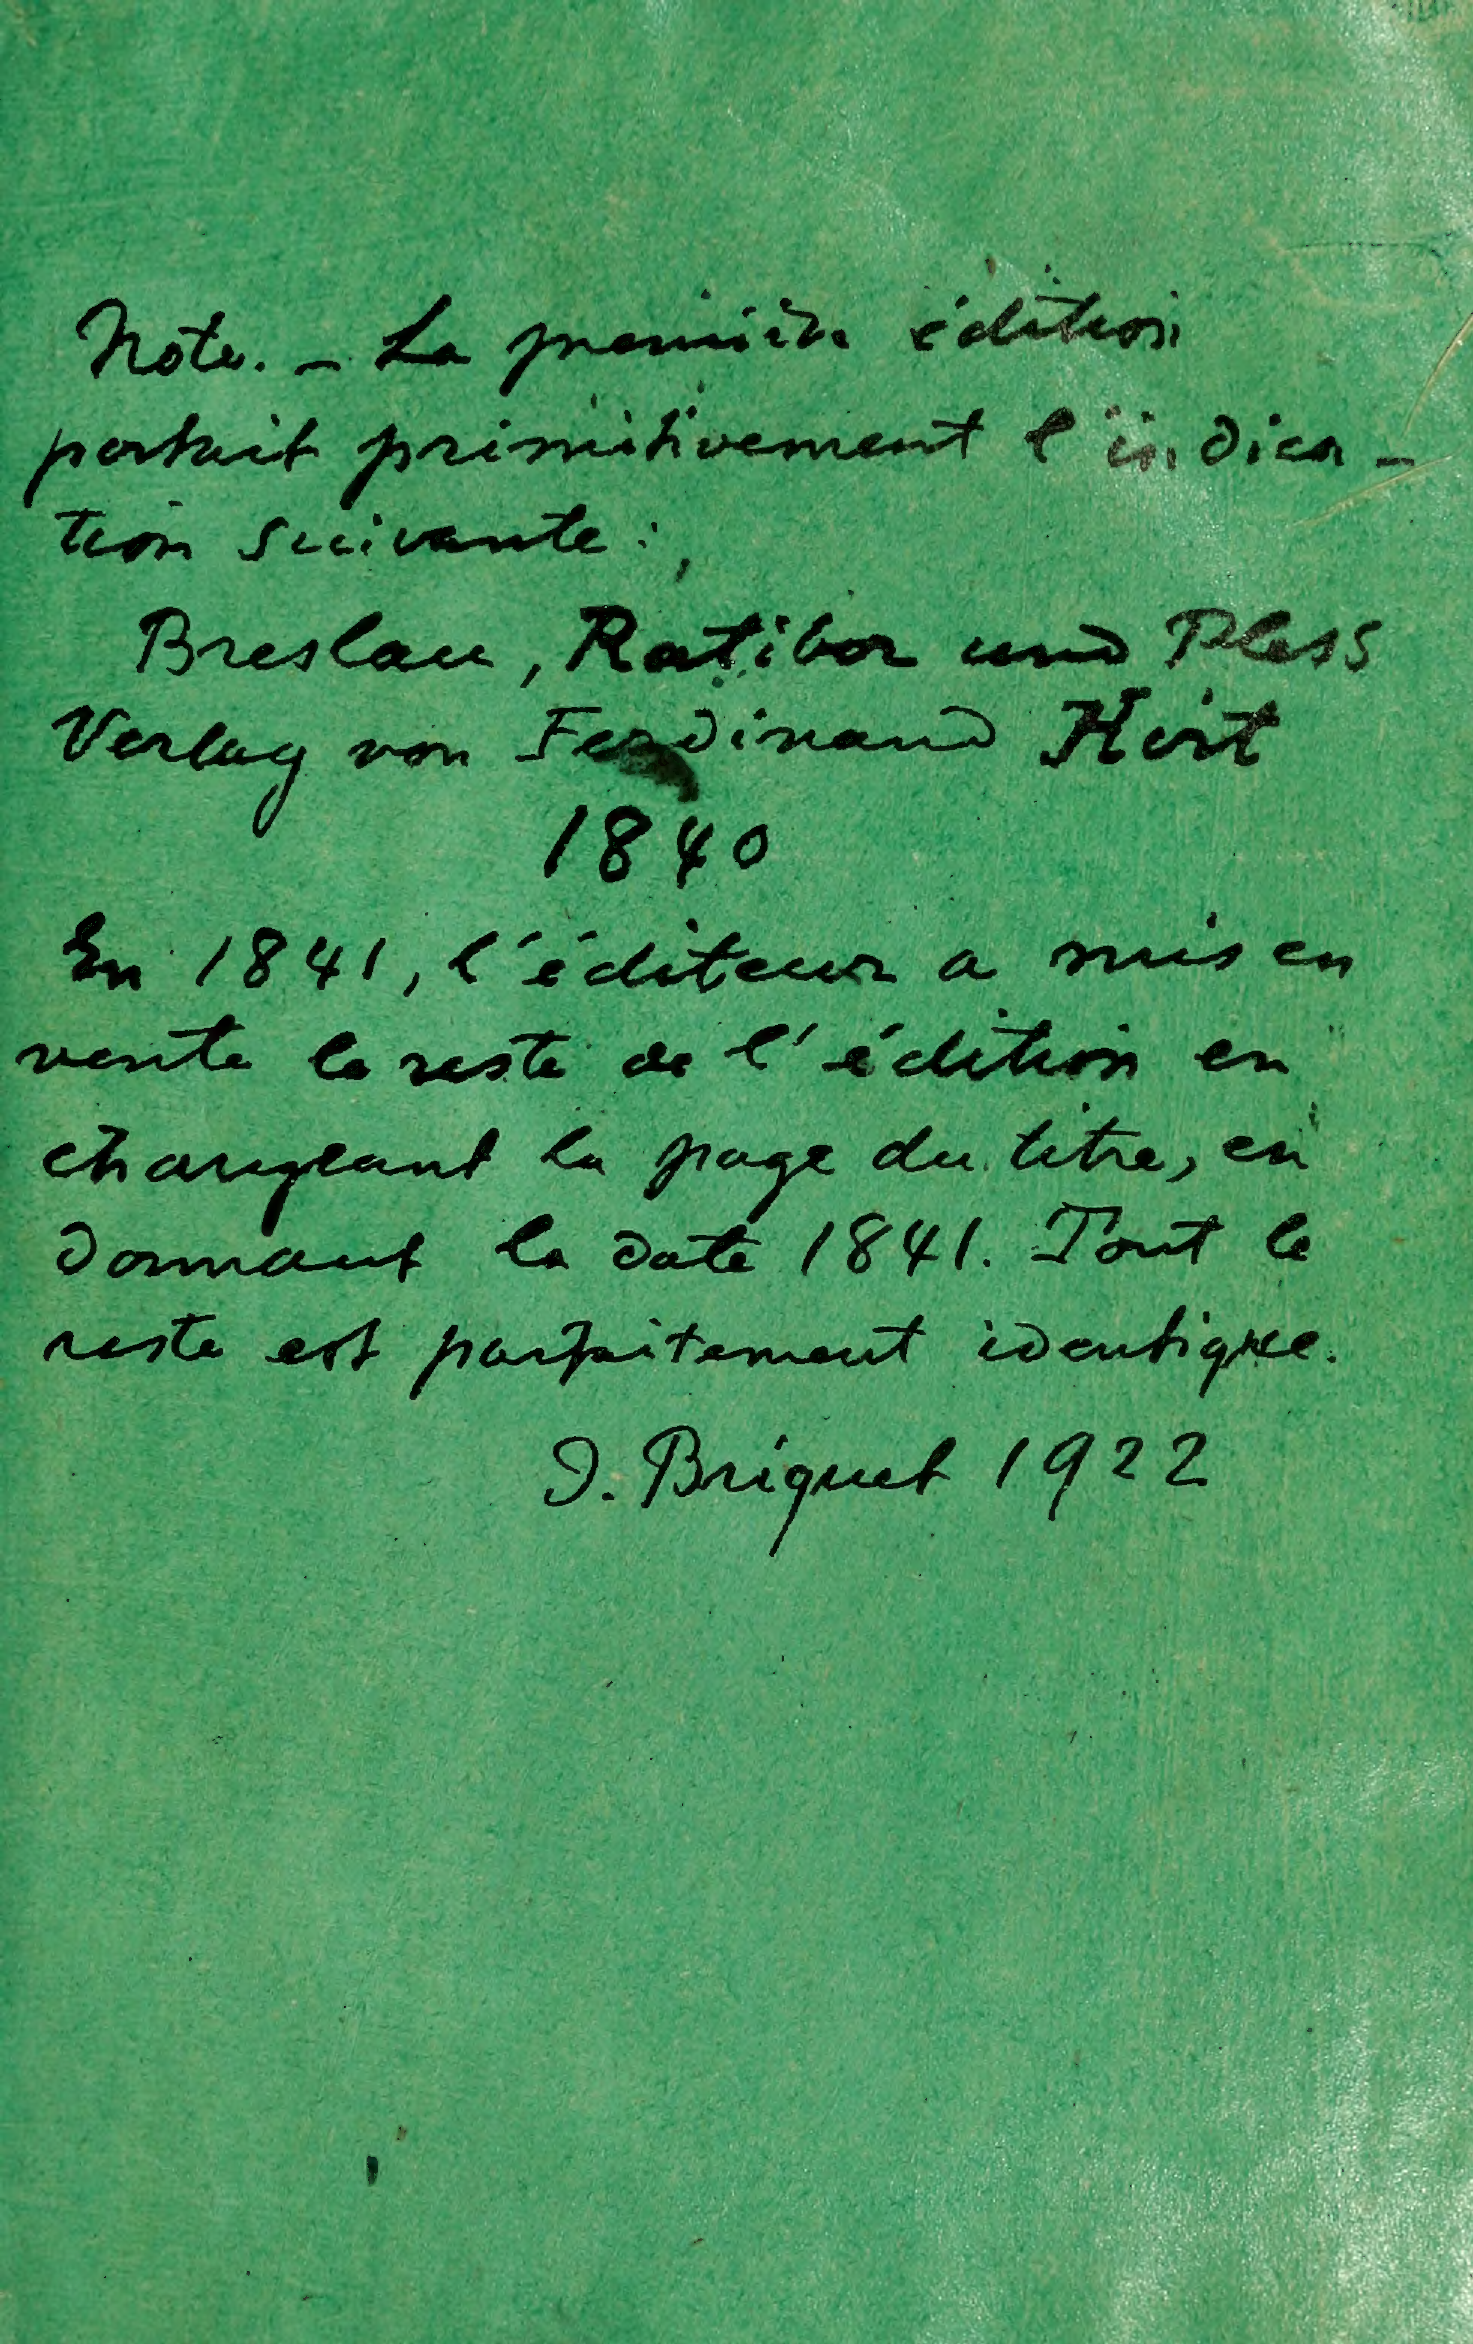 Note. – La première édition
portait primitivement l'indica-
tion suivante:
Breslau, Ratibor und Pless
Verlag von Ferdinand Hirt
1840
En 1841, l'éditeur a mis en
vente le reste de l'édition en
changeant la page du titre, en
donnant la date 1841. Tout le
reste est parfaitement identique.
J. Briquet 1922